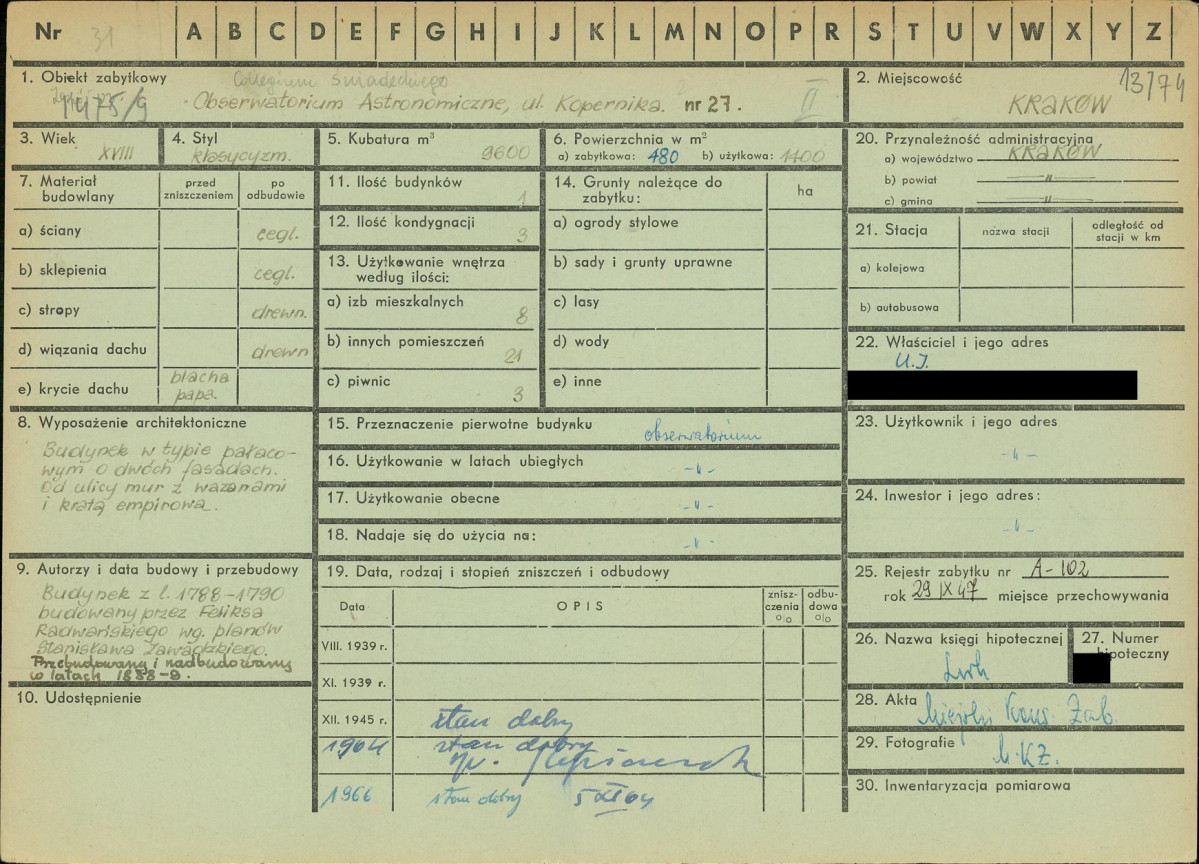 Nr 31 A B C D E F G H I J K L M N O P R S T U V W X Y Z
1. Obiekt zabytkowy
Collegium Śniadeckiego
1475/9
Obserwatorium Astronomiczne, ul. Kopernika. nr 27.
II
2. Miejscowość
13/74
KRAKÓW
3. Wiek
XVIII
4. Styl
klasycyzm.
5. Kubatura m³
9600
6. Powierzchnia w m²
a) zabytkowa: 480 b) użytkowa: 1400
20. Przynależność administracyjna
a) województwo KRAKÓW
b) powiat —"—
c) gmina —"—
7. Materiał budowlany
przed zniszczeniem
po odbudowie
a) ściany cegl.
b) sklepienia cegl.
c) stropy drewn.
d) wiązania dachu drewn
e) krycie dachu blacha
papa.
11. Ilość budynków
1
12. Ilość kondygnacji
3
13. Użytkowanie wnętrza
według ilości:
a) izb mieszkalnych
8
b) innych pomieszczeń
21
c) piwnic
3
14. Grunty należące do
zabytku:
ha
a) ogrody stylowe
b) sady i grunty uprawne
c) lasy
d) wody
e) inne
21. Stacja
nazwa stacji
odległość od
stacji w km
a) kolejowa
b) autobusowa
22. Właściciel i jego adres
U.J.
8. Wyposażenie architektoniczne
Budynek w typie pałaco-
wym o dwóch fasadach.
Od ulicy mur z wazanami
i kratą empirową.
15. Przeznaczenie pierwotne budynku
obserwatorium
16. Użytkowanie w latach ubiegłych
-"-
17. Użytkowanie obecne
-"-
18. Nadaje się do użycia na:
-"-
23. Użytkownik i jego adres
-"-
24. Inwestor i jego adres:
-"-
9. Autorzy i data budowy i przebudowy
Budynek z l. 1788-1790
budowany przez Feliksa
Radwańskiego wg. planów
Stanisława Zawadzkiego.
Przebudowany i nadbudowany
w latach 1858-9.
10. Udostępnienie
19. Data, rodzaj i stopień zniszczeń i odbudowy
Data
OPIS
znisz-
czenia
o|o
odbu-
dowa
o|o
VIII. 1939 r.
XI. 1939 r.
XII. 1945 r. stan dobry
1964 stan dobry
1966 stan dobry 5 XI 64
25. Rejestr zabytku nr A-102
rok 29 IX 47 miejsce przechowywania
26. Nazwa księgi hipotecznej
Lwh
27. Numer
hipoteczny
28. Akta Miejski Kons. Zab.
29. Fotografie
M.KZ.
30. Inwentaryzacja pomiarowa